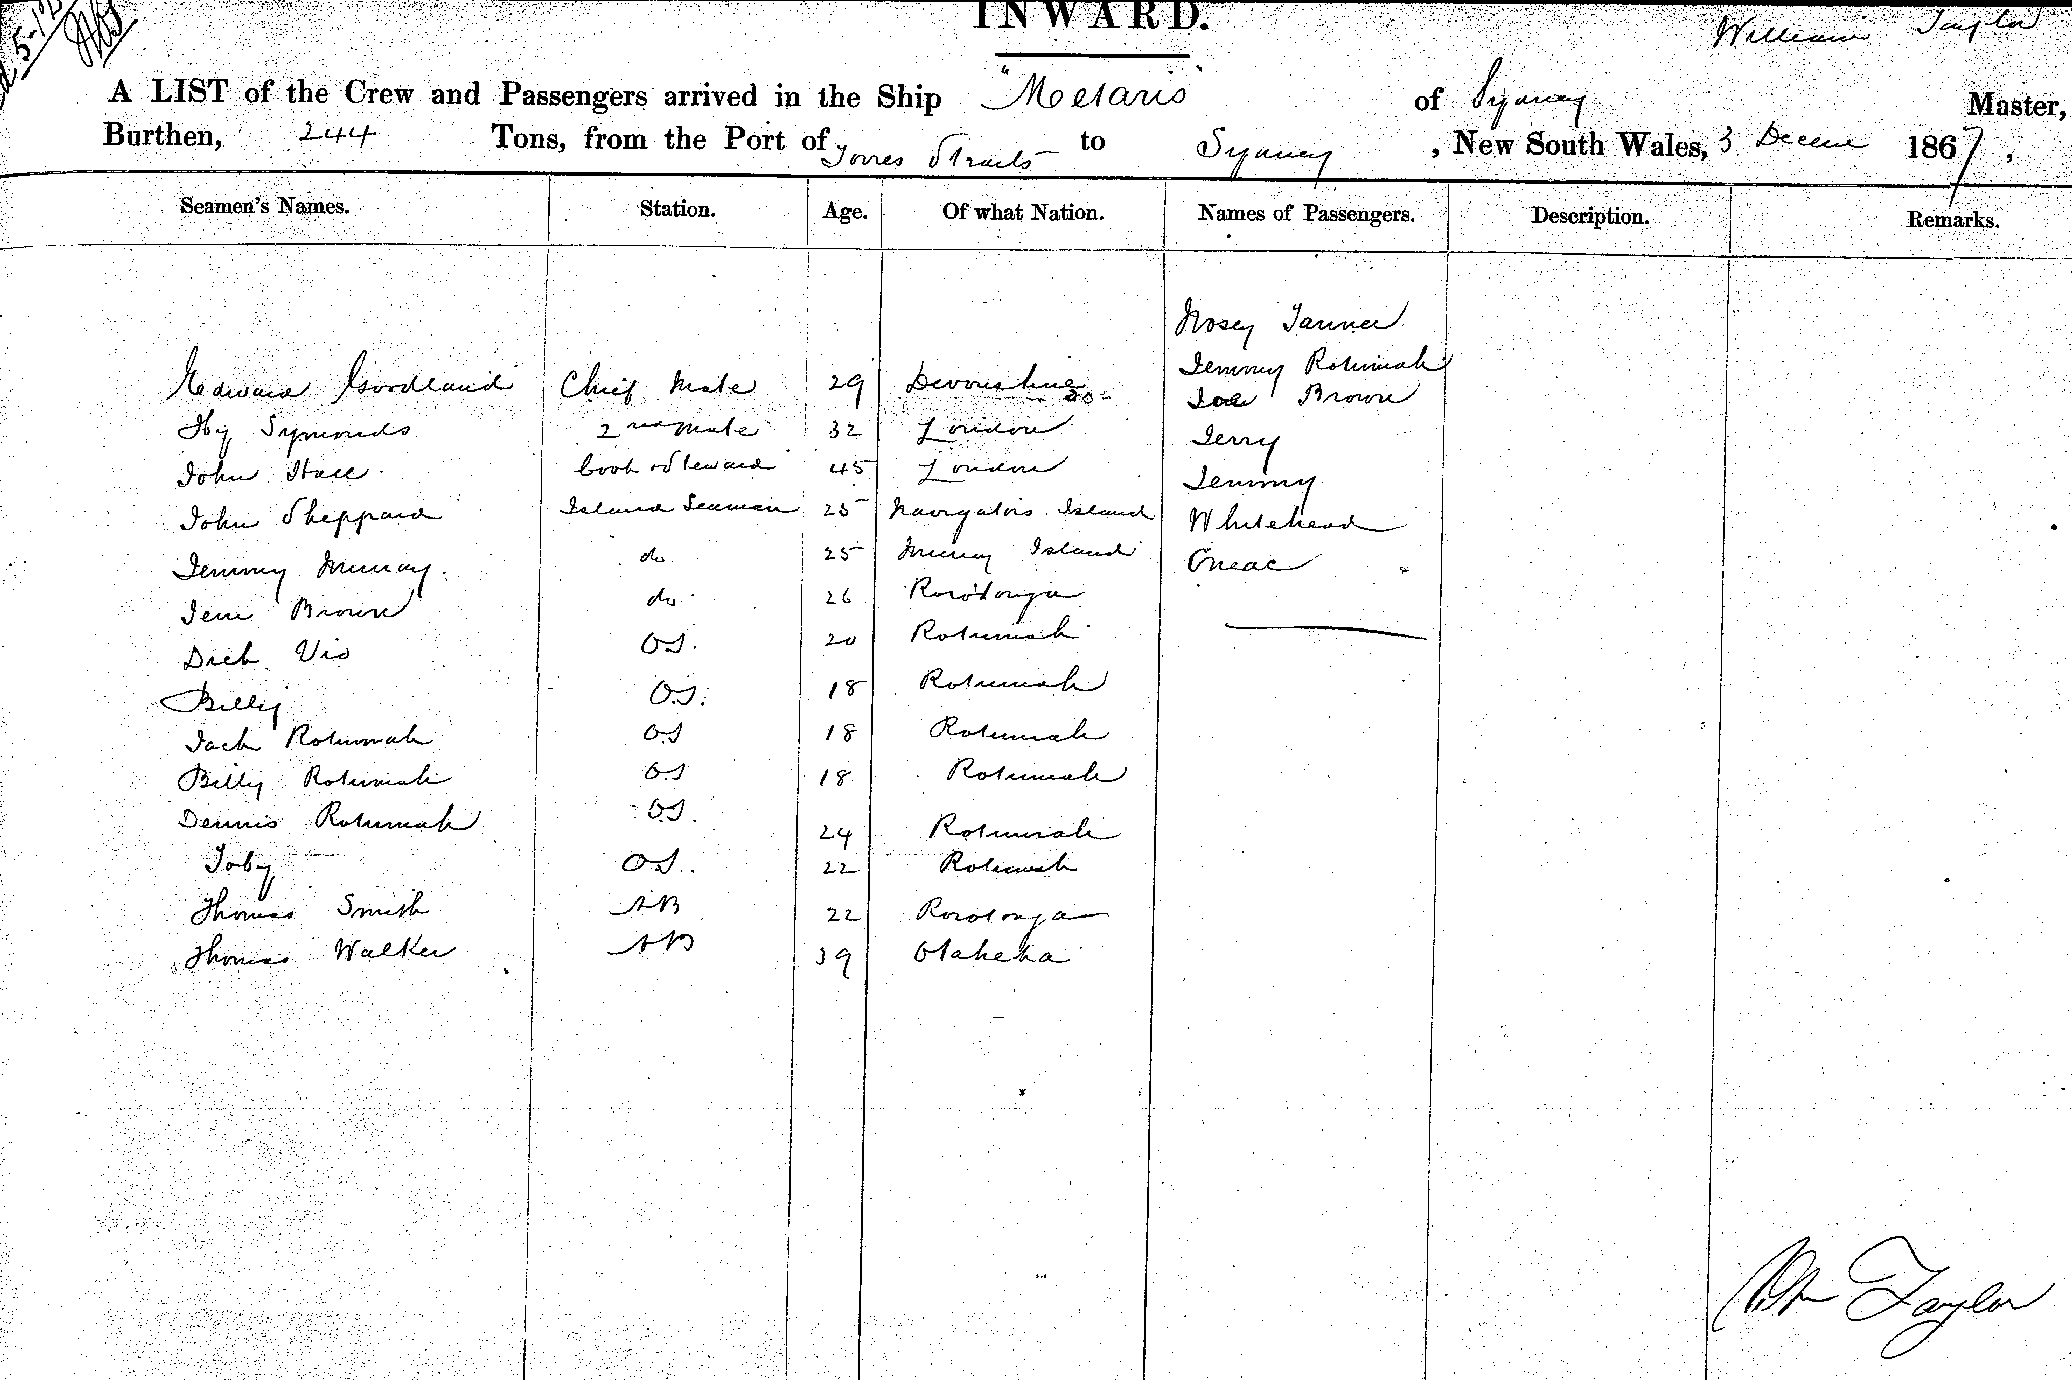 INWARD.
William Taylor
A LIST of the Crew and Passengers arrived in the Ship "Metaris" of Sydney Master,
Burthen, 244 Tons, from the Port of Torres Straits to Sydney, New South Wales, 3 Decem 1867,
Seamen's Names. Station. Age. Of what Nation. Names of Passengers. Description. Remarks.
Nosey Tanner
Jemmy Rotumah
Edward Goodland Chief Mate 29 Devonshire Joe Brown
Hy Symonds 2nd Mate 32 London Jerry
John Hall Cook & Steward 45 London Jemmy
John Sheppard Island Seaman 25 Navigators Island Whitehead
Jemmy Murray do 25 Murray Island
Jem Brown do 26 Rorotonga
Dick Vio OS. 20 Rotumah
Billy O.S. 18 Rotumah
Jack Rotumah OS 18 Rotumah
Billy Rotumah OS 18 Rotumah
Dennis Rotumah OS. 24 Rotumah
Toby OS. 22 Rotumah
Thomas Smith AB 22 Rorotonga
Thomas Walker AB 39 Otaheta
Wm Taylor